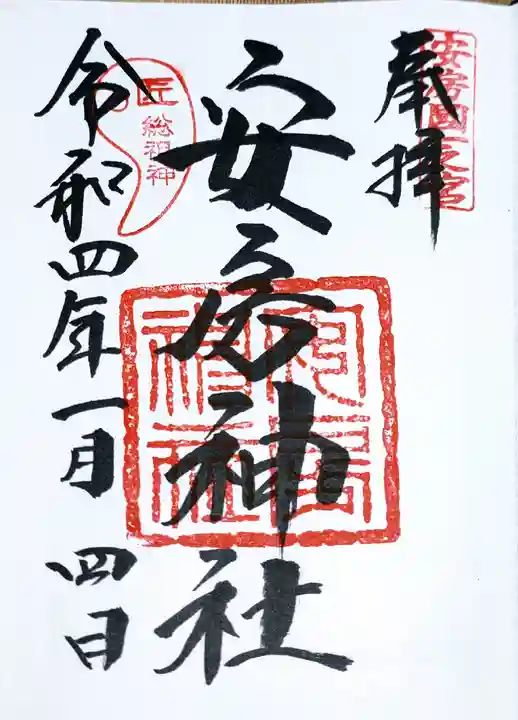 奉拝
安房國一之宮
安房神社
匠
総祖神
令和四年一月四日